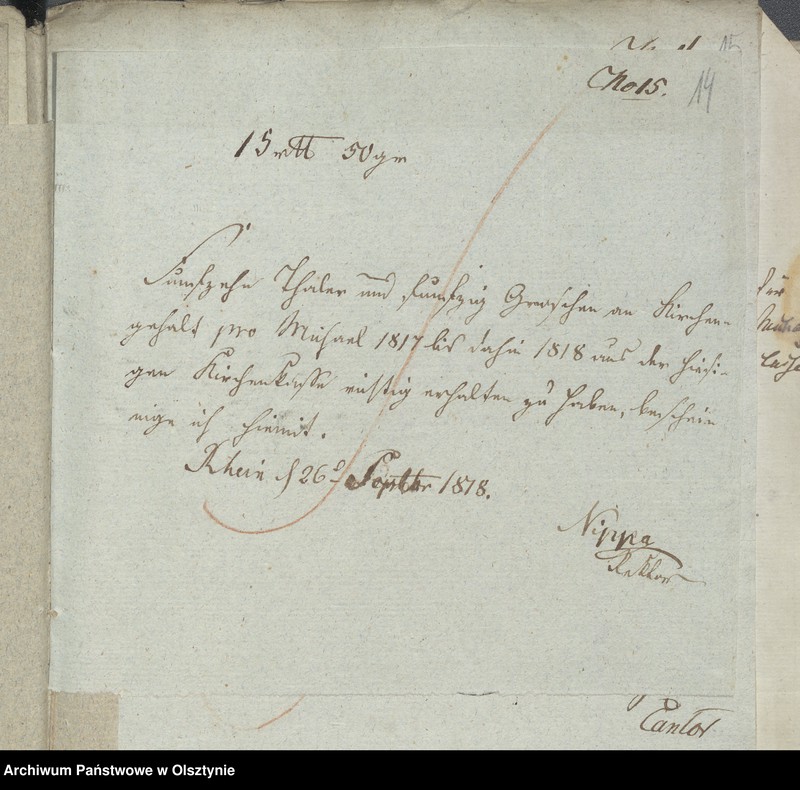 15
No 15.
14
15 rtl 50 gr
Funfzehn Thaler und funfzig Groschen an Kirchen-
gehalt pro Michael 1817 bis dahin 1818 aus der hiesi-
gen Kirchenkasse richtig erhalten zu haben, beschein
nige ich hiemit.
Rhein d 26t Septbr 1818.
Nippa
Rektor
Cantor
für
Archiwum Państwowe w Olsztynie